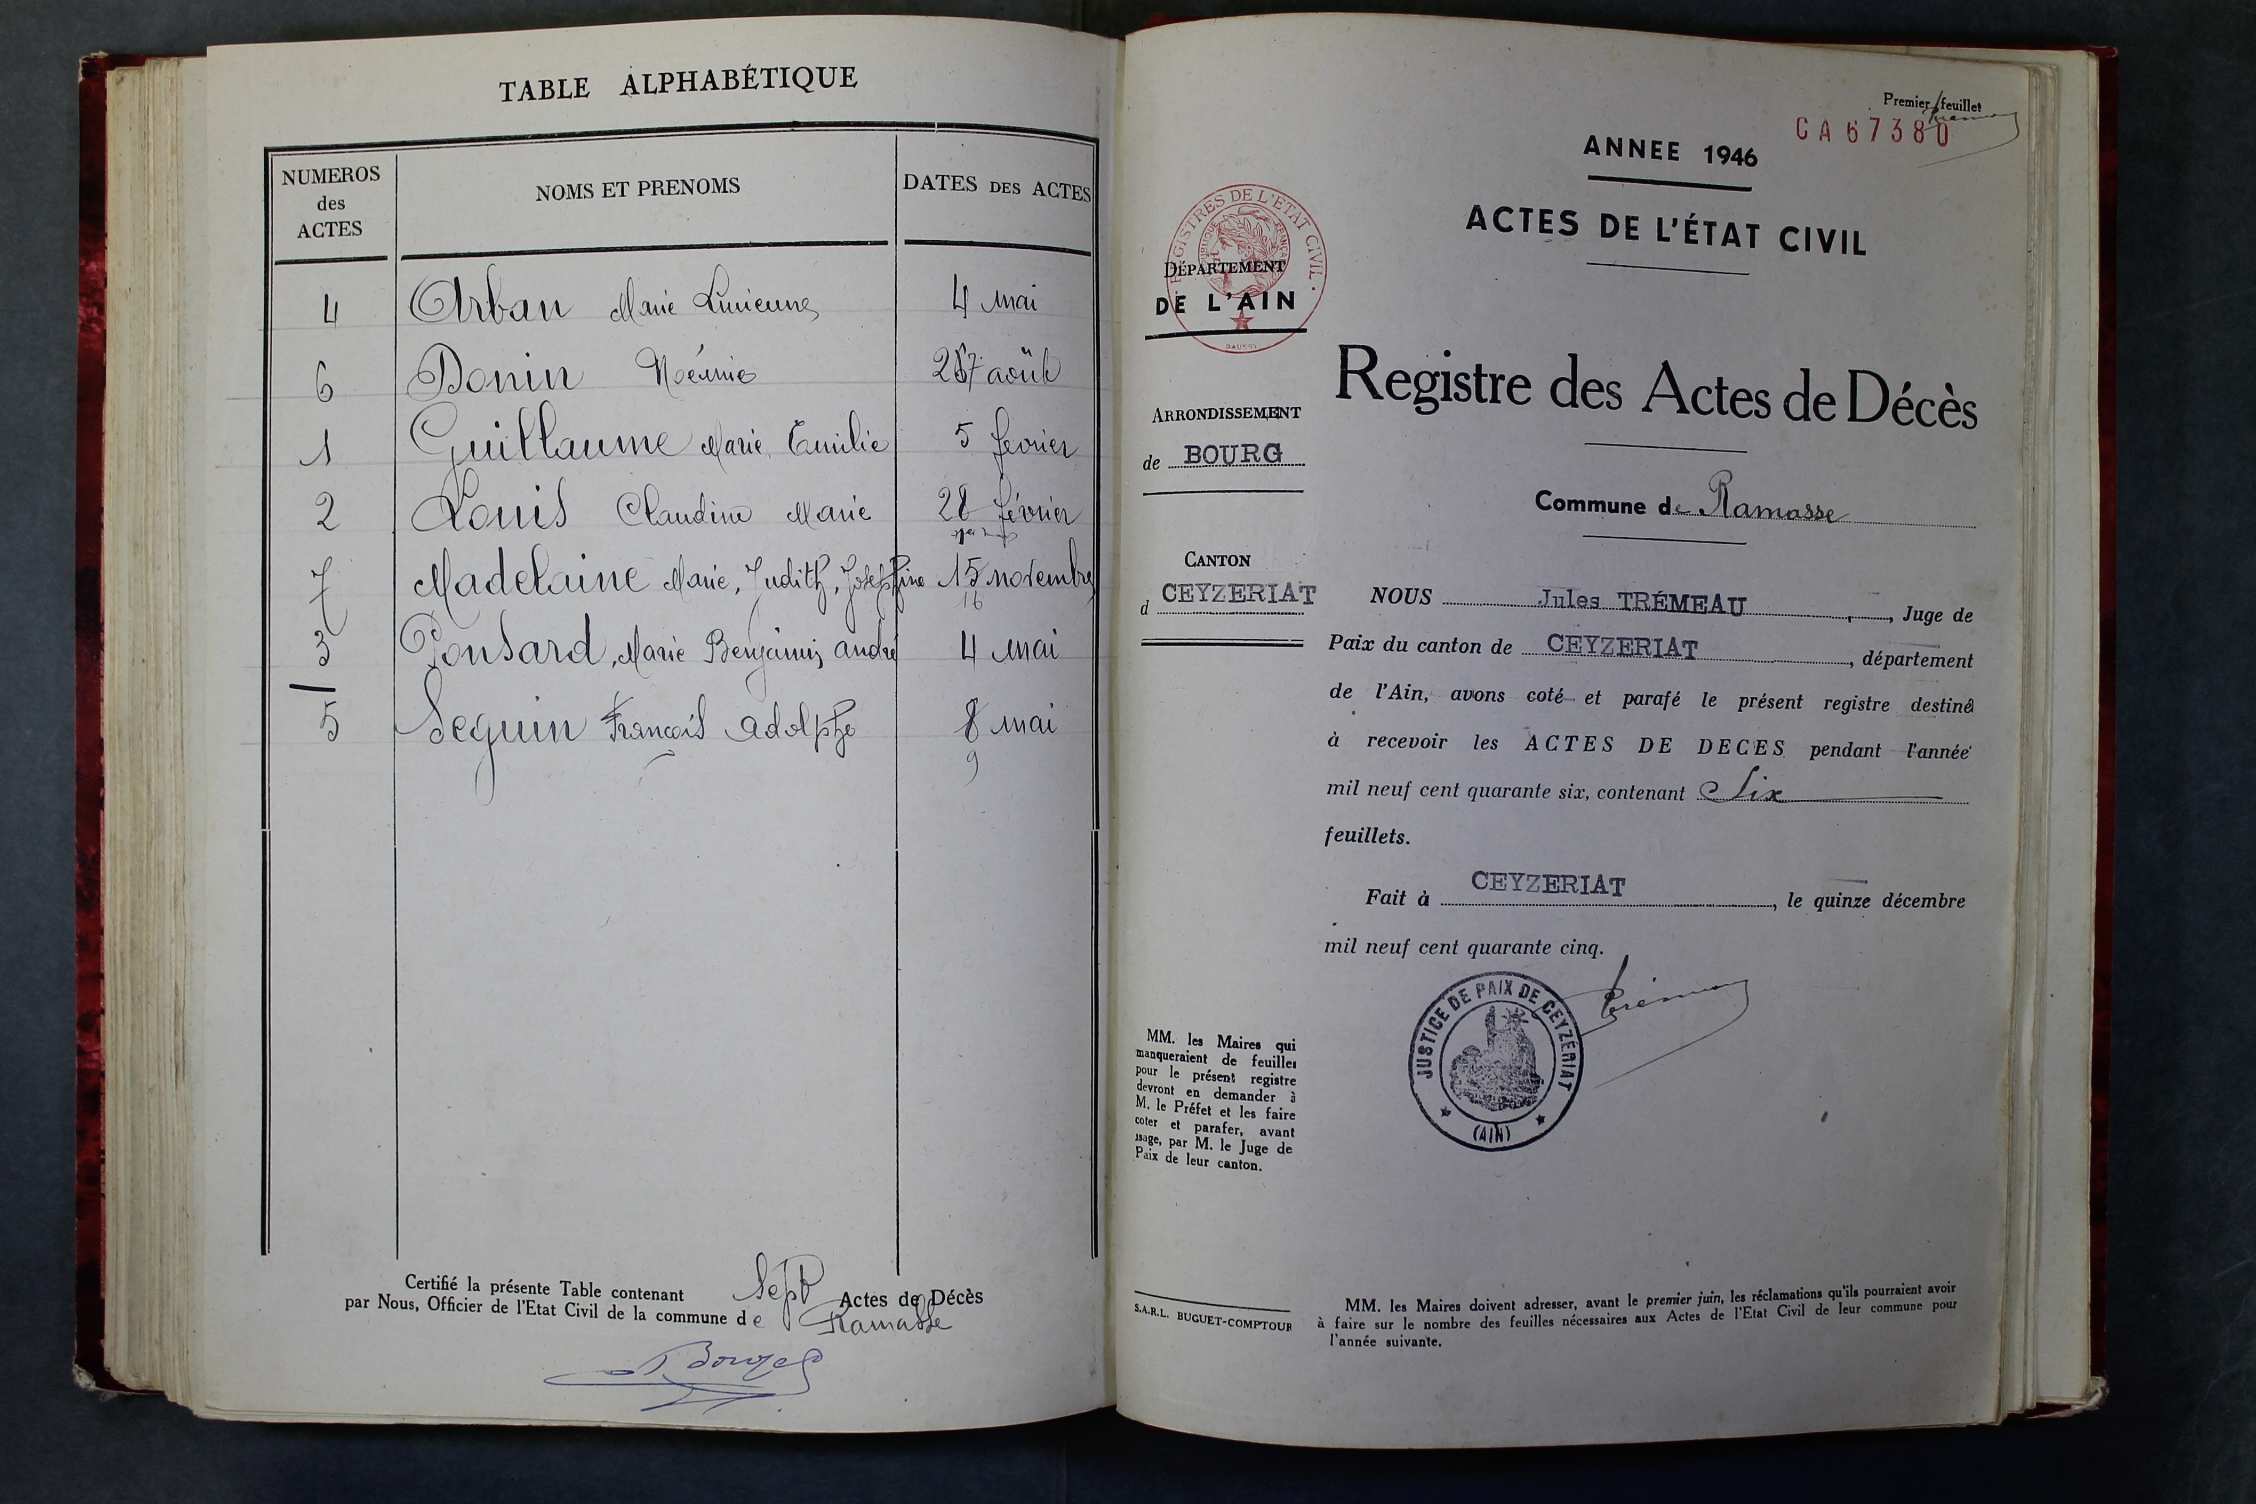 TABLE ALPHABÉTIQUE
NUMEROS des ACTES NOMS ET PRENOMS DATES DES ACTES
4 Arban Marie Lucienne 4 mai
6 Donin Noémie 27 août
1 Guillaume Marie Emilie 5 fevrier
2 Louis Claudine Marie 28 février
7 Madelaine Marie, Judith, Joséphine 15 novembre
16
3 Ponsard, Marie Benjamin andré 4 mai
5 Seguin François Adolphe 8 mai
9
Certifié la présente Table contenant Sept Actes de Décès
par Nous, Officier de l'Etat Civil de la commune de Ramasse
Premier feuillet
CA67380
ANNEE 1946
ACTES DE L'ÉTAT CIVIL
REGISTRES DE L'ETAT CIVIL
RÉPUBLIQUE FRANÇAISE
DÉPARTEMENT
DE L'AIN
Registre des Actes de Décès
ARRONDISSEMENT
de BOURG
Commune de Ramasse
CANTON
d CEYZERIAT
NOUS Jules TRÉMEAU, Juge de
Paix du canton de CEYZERIAT, département
de l'Ain, avons coté et parafé le présent registre destiné
à recevoir les ACTES DE DECES pendant l'année
mil neuf cent quarante six, contenant Six
feuillets.
Fait à CEYZERIAT, le quinze décembre
mil neuf cent quarante cinq.
JUSTICE DE PAIX DE CEYZÉRIAT
(AIN)
MM. les Maires qui
manqueraient de feuilles
pour le présent registre
devront en demander à
M. le Préfet et les faire
coter et parafer, avant
usage, par M. le Juge de
Paix de leur canton.
S.A.R.L. BUGUET-COMPTOUR
MM. les Maires doivent adresser, avant le premier juin, les réclamations qu'ils pourraient avoir
à faire sur le nombre des feuilles nécessaires aux Actes de l'Etat Civil de leur commune pour
l'année suivante.